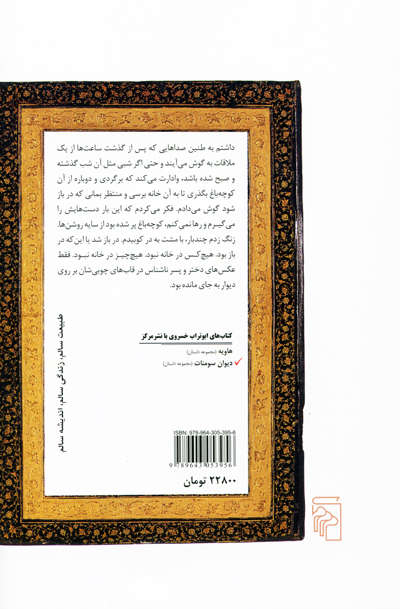 داشتم به طنین صداهایی که پس از گذشت ساعت‌ها از یک
ملاقات به گوش می‌آیند و حتی اگر شبی مثل آن شب گذشته
و صبح شده باشد، وادارت می‌کند که برگردی و دوباره از آن
کوچه‌باغ بگذری تا به آن خانه برسی و منتظر بمانی که در باز
شود گوش می‌دادم. فکر می‌کردم که این بار دست‌هایش را
می‌گیرم و رها نمی‌کنم، کوچه‌باغ پر شده بود از سایه روشن‌ها.
زنگ زدم چندبار، با مشت به در کوبیدم. در باز شد یا این‌که در
باز بود. هیچ‌کس در خانه نبود. هیچ‌چیز در خانه نبود. فقط
عکس‌های دختر و پسر ناشناس در قاب‌های چوبی‌شان بر روی
دیوار به جای مانده بود.
کتاب‌های ابوتراب خسروی با نشرمرکز
هاویه (مجموعه داستان)
دیوان سومنات (مجموعه داستان)
طبیعت سالم، زندگی سالم، اندیشه سالم
ISBN: 978-964-305-395-6
9 789643 053956
۲۲۸۰۰ تومان